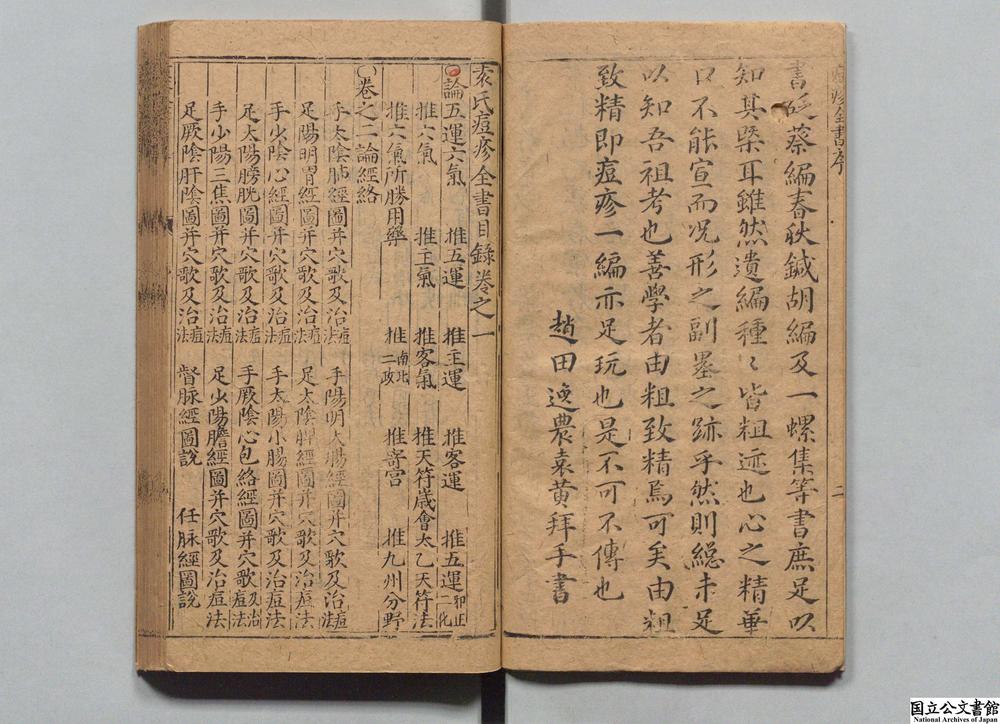 痘疹全書序
二
書砭蔡編春秋鍼胡編及一螺集等書庶足以
知其槩耳雖然遺編種〻皆粗迹也心之精華
口不能宣而况形之副墨之跡乎然則總未足
以知吾祖考也善學者由粗致精焉可矣由粗
致精即痘疹一編亦足玩也是不可不傳也
趙田逸農袁黃拜手書
袁氏痘疹全書目錄卷之一
○論五運六氣 推五運 推主運 推客運 推五運邪正二化
推六氣 推主氣 推客氣 推天符歲會太乙天符法
推六氣所勝用藥 推南北二政 推寄宫 推九州分野
○卷之二論經絡
手太陰肺經圖并穴歌及治痘法 手陽明大腸經圖并穴歌及治痘法
足陽明胃經圖并穴歌及治痘法 足太陰脾經圖并穴歌及治痘法
手少陰心經圖并穴歌及治痘法 手太陽小腸圖并穴歌及治痘法
足太陽膀胱圖并穴歌及治痘法 手厥陰心包絡經圖并穴歌及治痘法
手少陽三焦圖并穴歌及治痘法 足少陽膽經圖并穴歌及治痘法
足厥陰肝陰圖并穴歌及治痘法 督脉經圖說 任脉經圖說
国立公文書館
National Archives of Japan